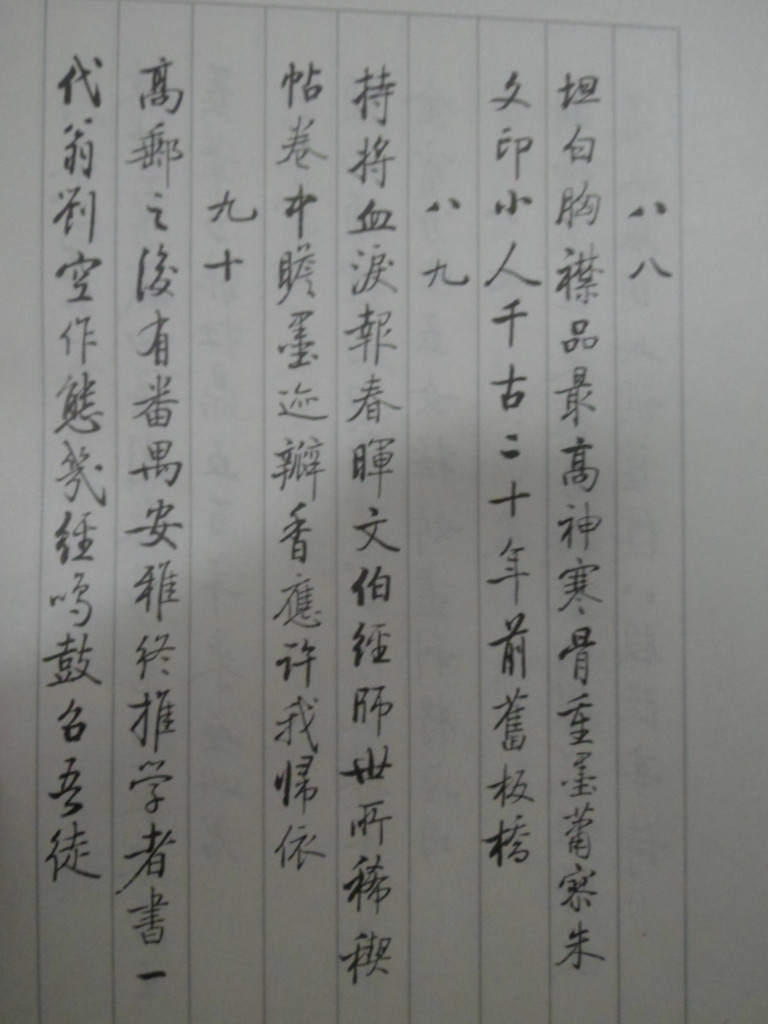 八八
坦白胸襟品最高神寒骨重墨萧寥朱
文印小人千古二十年前舊板橋
八九
持將血淚報春暉文伯經師世所稀禊
帖卷中瞻墨迹瓣香應許我歸依
九十
高郵之後有番禺安雅終推学者書一
代翁劉空作態幾經鳴鼓召吾徒